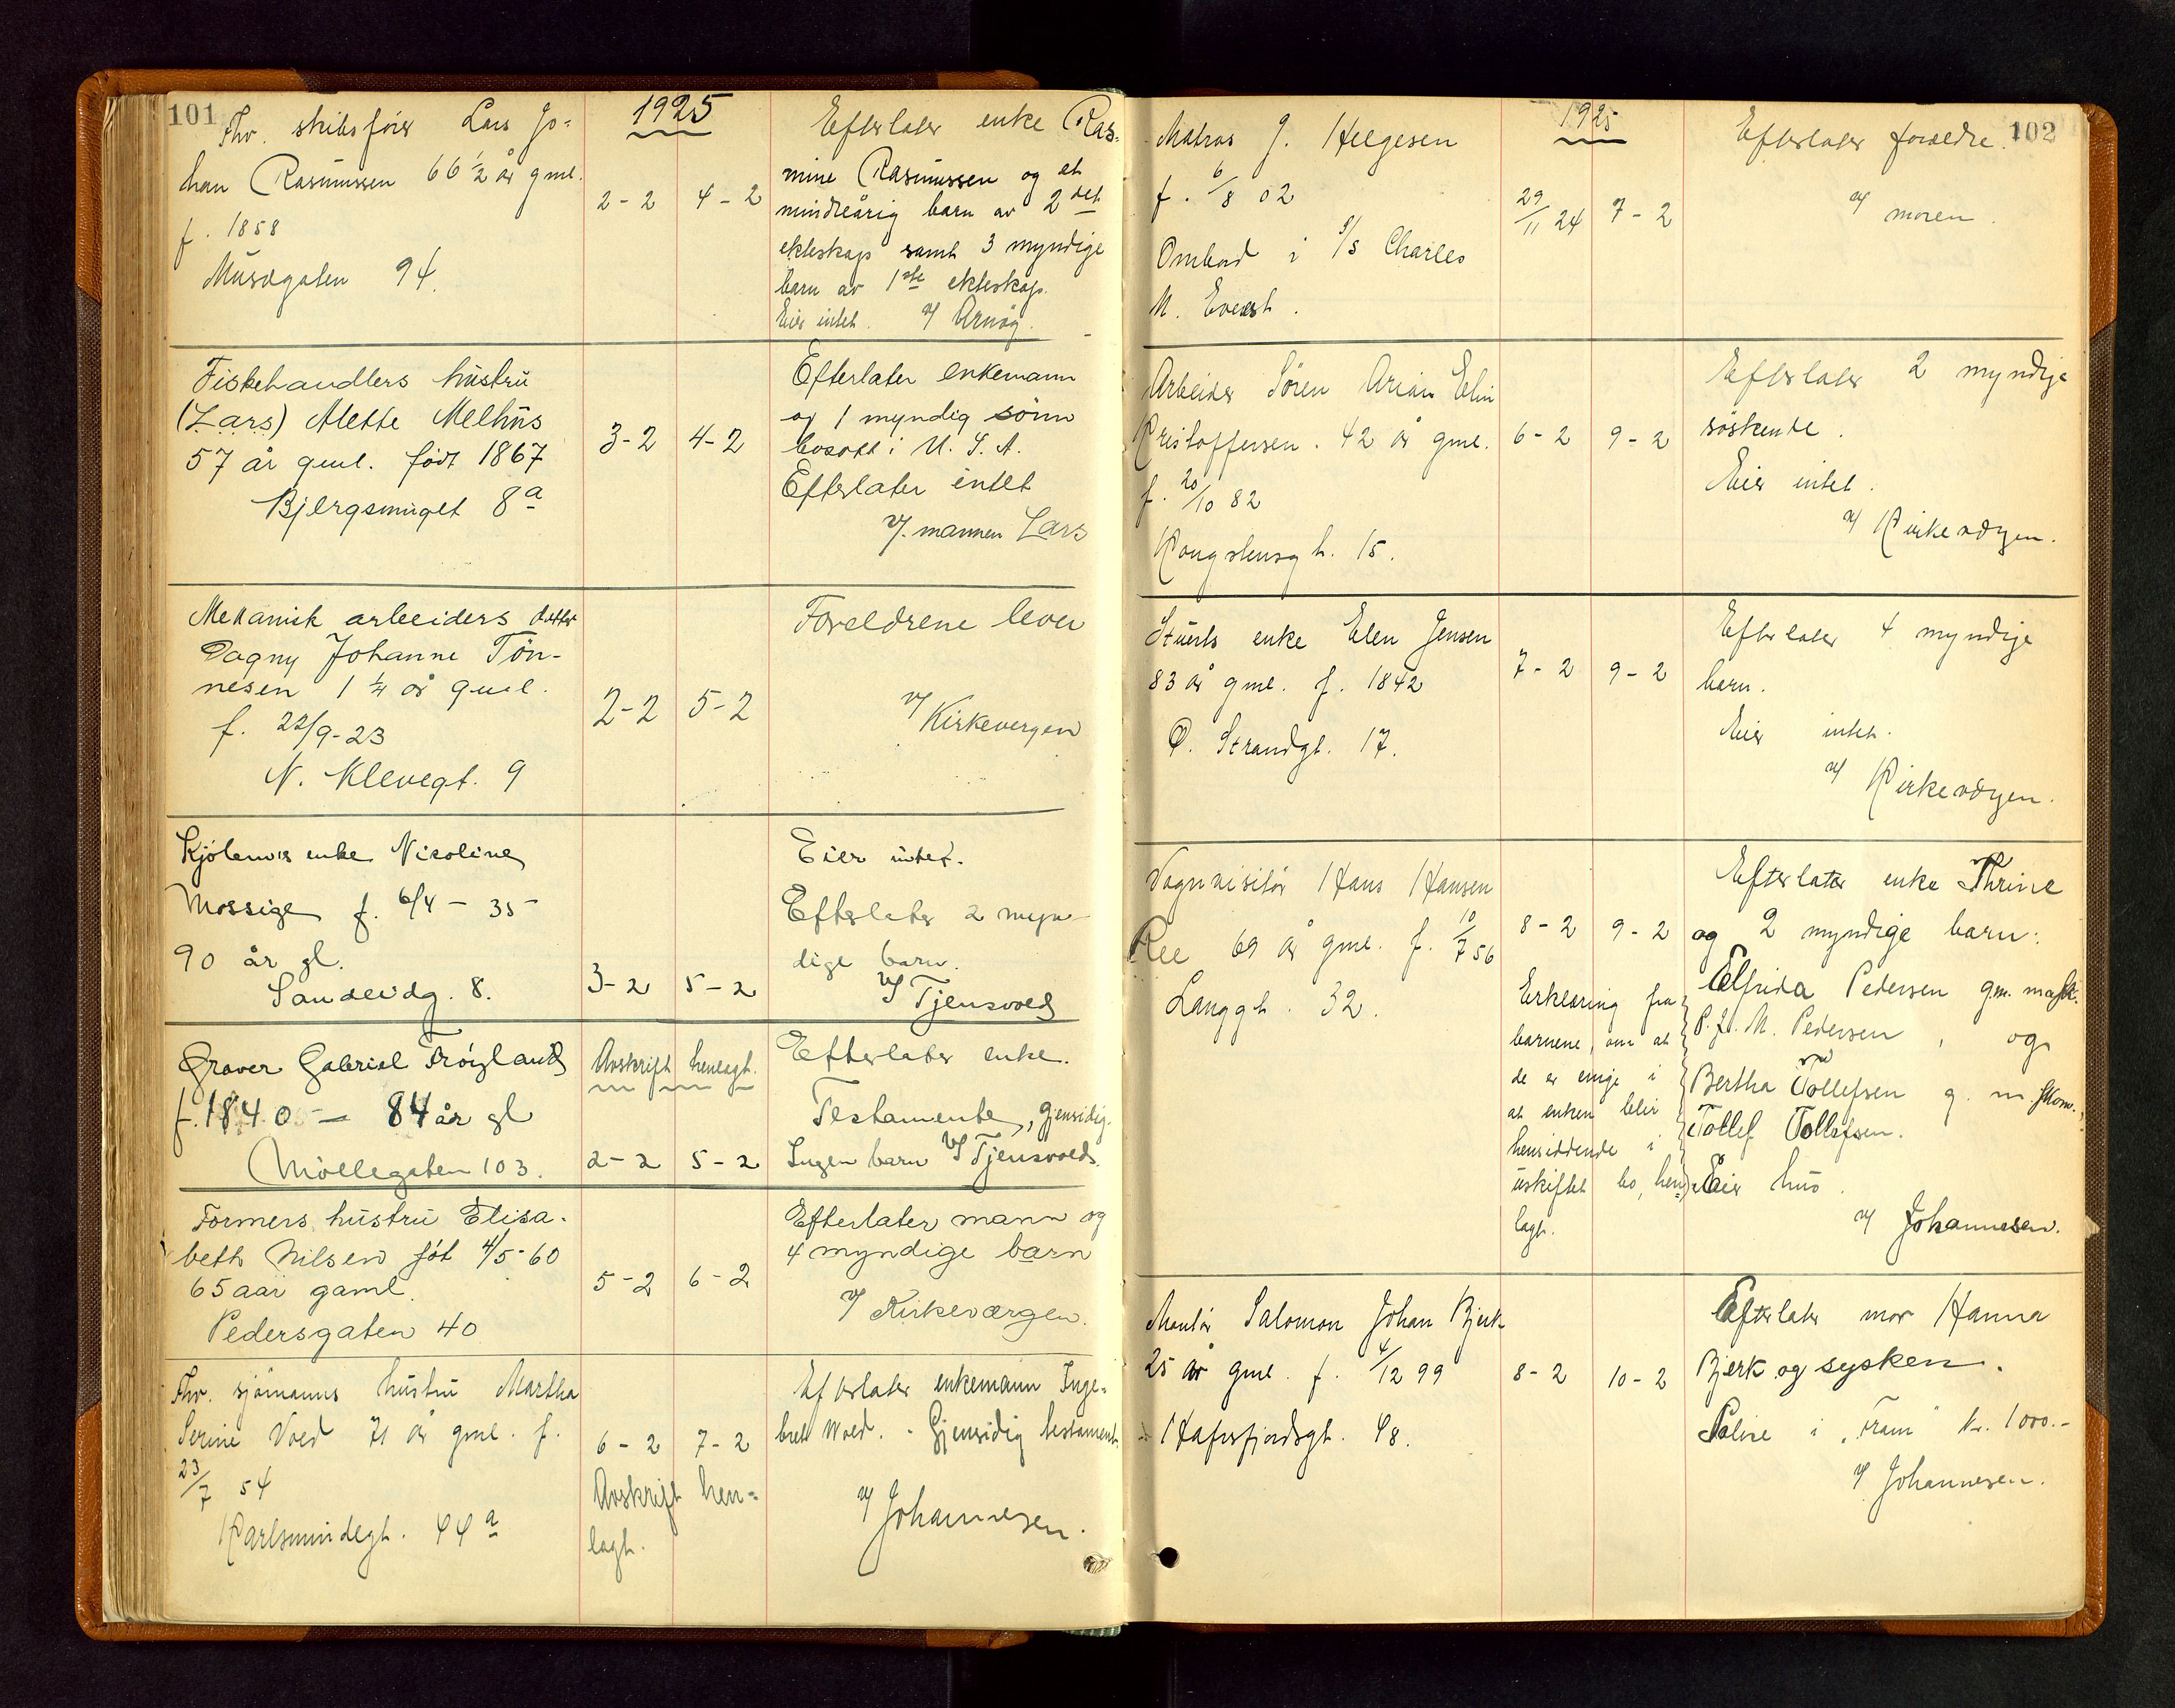 101
1925
Fhv. skibsförer Lars Jo-
han Rasmussen 66 1/2 år gml.
f. 1858
Musægaten 94.
2-2 4-2
Efterlater enke Ras-
mine Rasmussen og et
mindreårig barn av 2det
ekteskap samt 3 myndige
barn av 1ste ekteskap.
Eier intet. v/ Arnög.
Fiskehandlers hustru
(Lars) Alette Melhus
57 år gml. födt 1867
Bjergsmuget 8a
3-2 4-2
Efterlater enkemann
og 1 myndig sönn
bosatt i U. S. A.
Efterlater intet
v/. mannen Lars
Mekanisk arbeiders datter
Dagny Johanne Tön-
nesen 1 1/4 år gml.
f. 22/9-23
N. Klevegt. 9
2-2 5-2
Foreldrene lever
v/ Kirkevergen
Kjölemrs enke Nicoline
Mossige f. 6/4 - 35 -
90 år gl.
Sandeidg. 8.
3-2 5-2
Eier intet.
Efterlater 2 myn-
dige barn.
v/ Tjensvold
Graver Gabriel Tröigland
f. 1840 - 84 år gl
Möllegaten 103.
Avskrift henlagt.
2-2 5-2
Efterlater enke.
Testamente, gjensidig.
Ingen barn v/ Tjensvold.
Formers hustru Elisa-
beth Nilsen föt 4/5-60
65 aar gaml.
Pedersgaten 40
5-2 6-2
Efterlater mann og
4 myndige barn
v/ Kirkeværgen.
Fhv. sjömanns hustru Martha
Serine Voed 71 år gml. f.
23/7 54
Karlsmindegt. 44a
6-2 7-2
Avskrift hen-
lagt.
Efterlater enkemann Inge-
bret Woed. - Gjensidig testament.
v/ Johannesen.
102
1925
Matros J. Helgesen
f. 6/8 02
Ombord i s/s Charles
M. Everest.
29/11 24 7-2
Efterlater foreldre.
v/ moren.
Arbeider Sören Arian Elin
Kristoffersen. 42 år gml.
f. 20/10 82
Kongstensgt. 15.
6-2 9-2
Efterlater 2 myndige
söskende.
Eier intet.
v/ Kirkeværgen.
Stuerts enke Elen Jensen
83 år gml. f. 1842
Ø. Strandgt. 17.
7-2 9-2
Efterlater 4 myndige
barn.
Eier intet.
v/ Kirkeværgen.
Vognvisitör Hans Hansen
Ree 69 år gml. f. 10/7 56
Langgt. 32.
8-2 9-2
Erklæring fra
barnene, om at
de er enige i
at enken blir
hensiddende i
uskiftet bo, hen-
lagt.
Efterlater enke Thrine
og 2 myndige barn:
Elfrida Pedersen g.m. mask.
P. J. M. Pedersen, og
Bertha Tollefsen g. m. skom.
Tollef Tollefsen.
Eier hus.
v/ Johannesen.
Montör Salomon Johan Bjerk
25 år gml. f. 4/12 99
Hafrsfjordsgt. 48.
8-2 10-2
Efterlater mor Hanna
Bjerk og sysken.
Polise i "Fram" kr. 1000.-
v/ Johannesen.